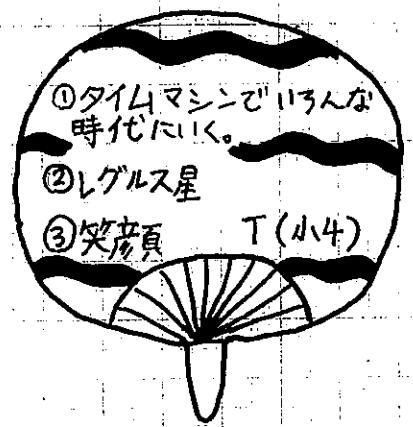 ①タイムマシンでいろんな
時代にいく。
②レグルス星
③笑顔 T(小4)